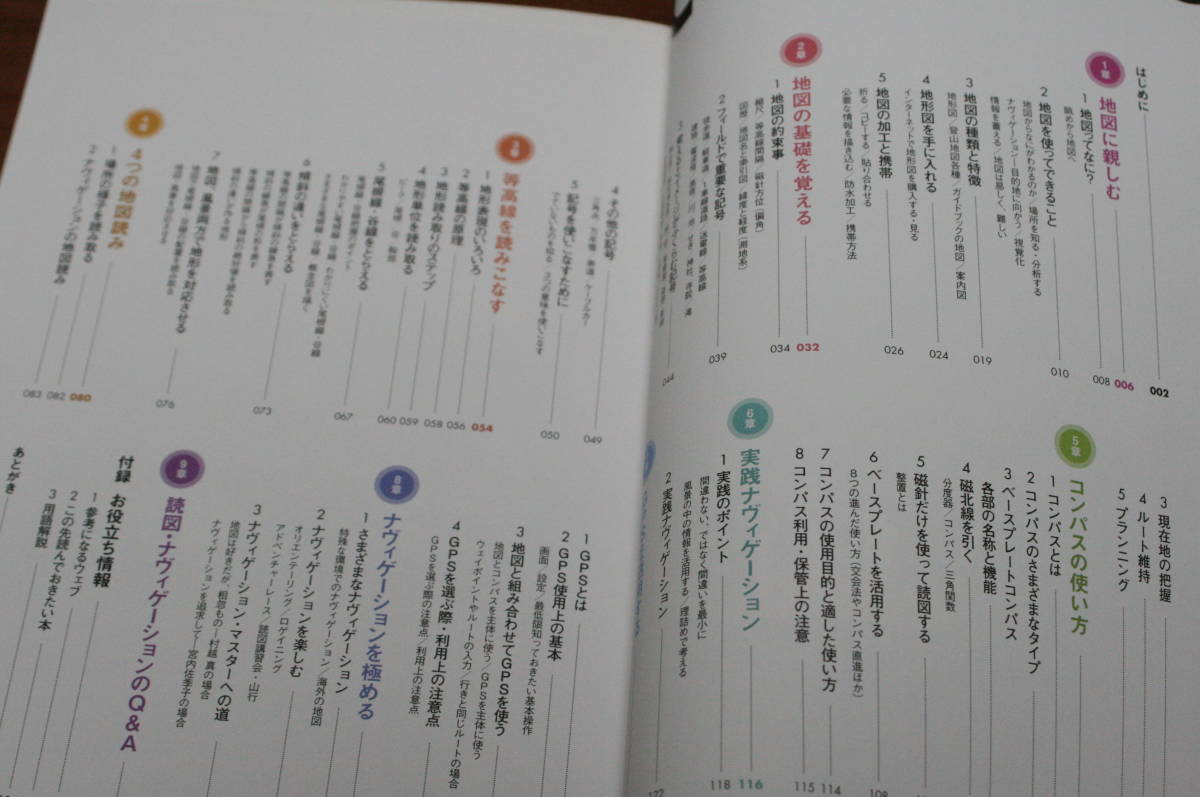 はじめに 002
1章 地図に親しむ 006
1 地図ってなに? 008
眺めから地図へ
2 地図を使ってできること 010
地図からなにがわかるのか/場所を知る・分析する
ナヴィゲーション—目的地に向かう/視覚化
情報を蓄える/地図は易しく、難しい
3 地図の種類と特徴 019
地形図/登山地図各種/ガイドブックの地図/案内図
4 地形図を手に入れる 024
インターネットで地形図を購入する・見る
5 地図の加工と携帯 026
折る/コピーする/貼り合わせる
必要な情報を描き込む/防水加工/携帯方法
2章 地図の基礎を覚える 032
1 地図の約束事 034
縮尺/等高線間隔/磁針方位(偏角)
図歴/地図名と索引図 緯度と経度(測地系)
2 フィールドで重要な記号 039
044
4 その他の記号 049
5 記号を使いこなすために 050
3章 等高線を読みこなす 054
1 地形表現のいろいろ 056
2 等高線の原理 058
3 地形読み取りのステップ 059
4 地形単位を読み取る 060
5 尾根線・谷線をとらえる 067
6 傾斜の違いをとらえる 073
7 地図、風景両方で地形を対応させる 076
4章 4つの地図読み 080
1 場所の様子を読み取る 082
2 ナヴィゲーションの地図読み 083
3 現在地の把握
4 ルート維持
5 プランニング
5章 コンパスの使い方
1 コンパスとは
2 コンパスのさまざまなタイプ
3 ベースプレートコンパス
各部の名称と機能
4 磁北線を引く
分度器/コンパス/三角関数
5 磁針だけを使って読図する
整置とは
6 ベースプレートを活用する
8つの進んだ使い方(交会法やコンパス直進ほか)
7 コンパスの使用目的と適した使い方 114
8 コンパス利用・保管上の注意 115
6章 実践ナヴィゲーション 116
1 実践のポイント 118
間違わない、ではなく間違いを最小に
風景の中の情報を活用する/理詰めで考える
2 実践ナヴィゲーション 122
1 GPSとは
2 GPS使用上の基本
画面/設定/最低限知っておきたい基本操作
3 地図と組み合わせてGPSを使う
地図とコンパスを主体に使う/GPSを主体に使う
ウェイポイントやルートの入力/行きと同じルートの場合
4 GPSを選ぶ際・利用上の注意点
GPSを選ぶ際の注意点/利用上の注意点
8章 ナヴィゲーションを極める
1 さまざまなナヴィゲーション
特殊な環境でのナヴィゲーション/海外の地図
2 ナヴィゲーションを楽しむ
オリエンテーリング/ロゲイニング
アドベンチャーレース/読図講習会・山行
3 ナヴィゲーション・マスターへの道
地図は好きだが、粗忽もの—村越 真の場合
ナヴィゲーションを追求して—宮内佐季子の場合
9章 読図・ナヴィゲーションのQ&A
付録 お役立ち情報
1 参考になるウェブ
2 この先読んでおきたい本
3 用語解説
あとがき